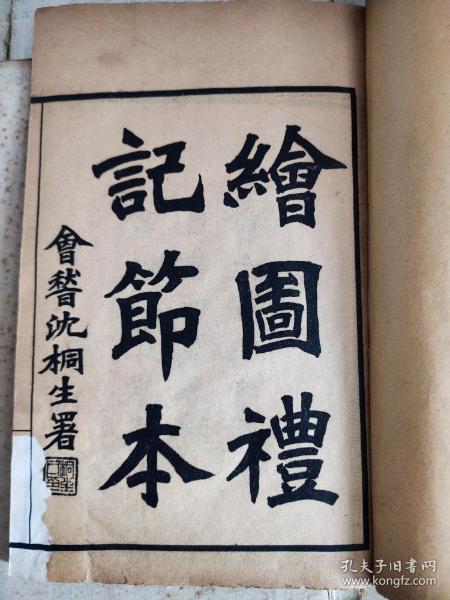 繪圖禮
記節本
會稽沈桐生署
孔夫子旧书网
www.kongfz.com